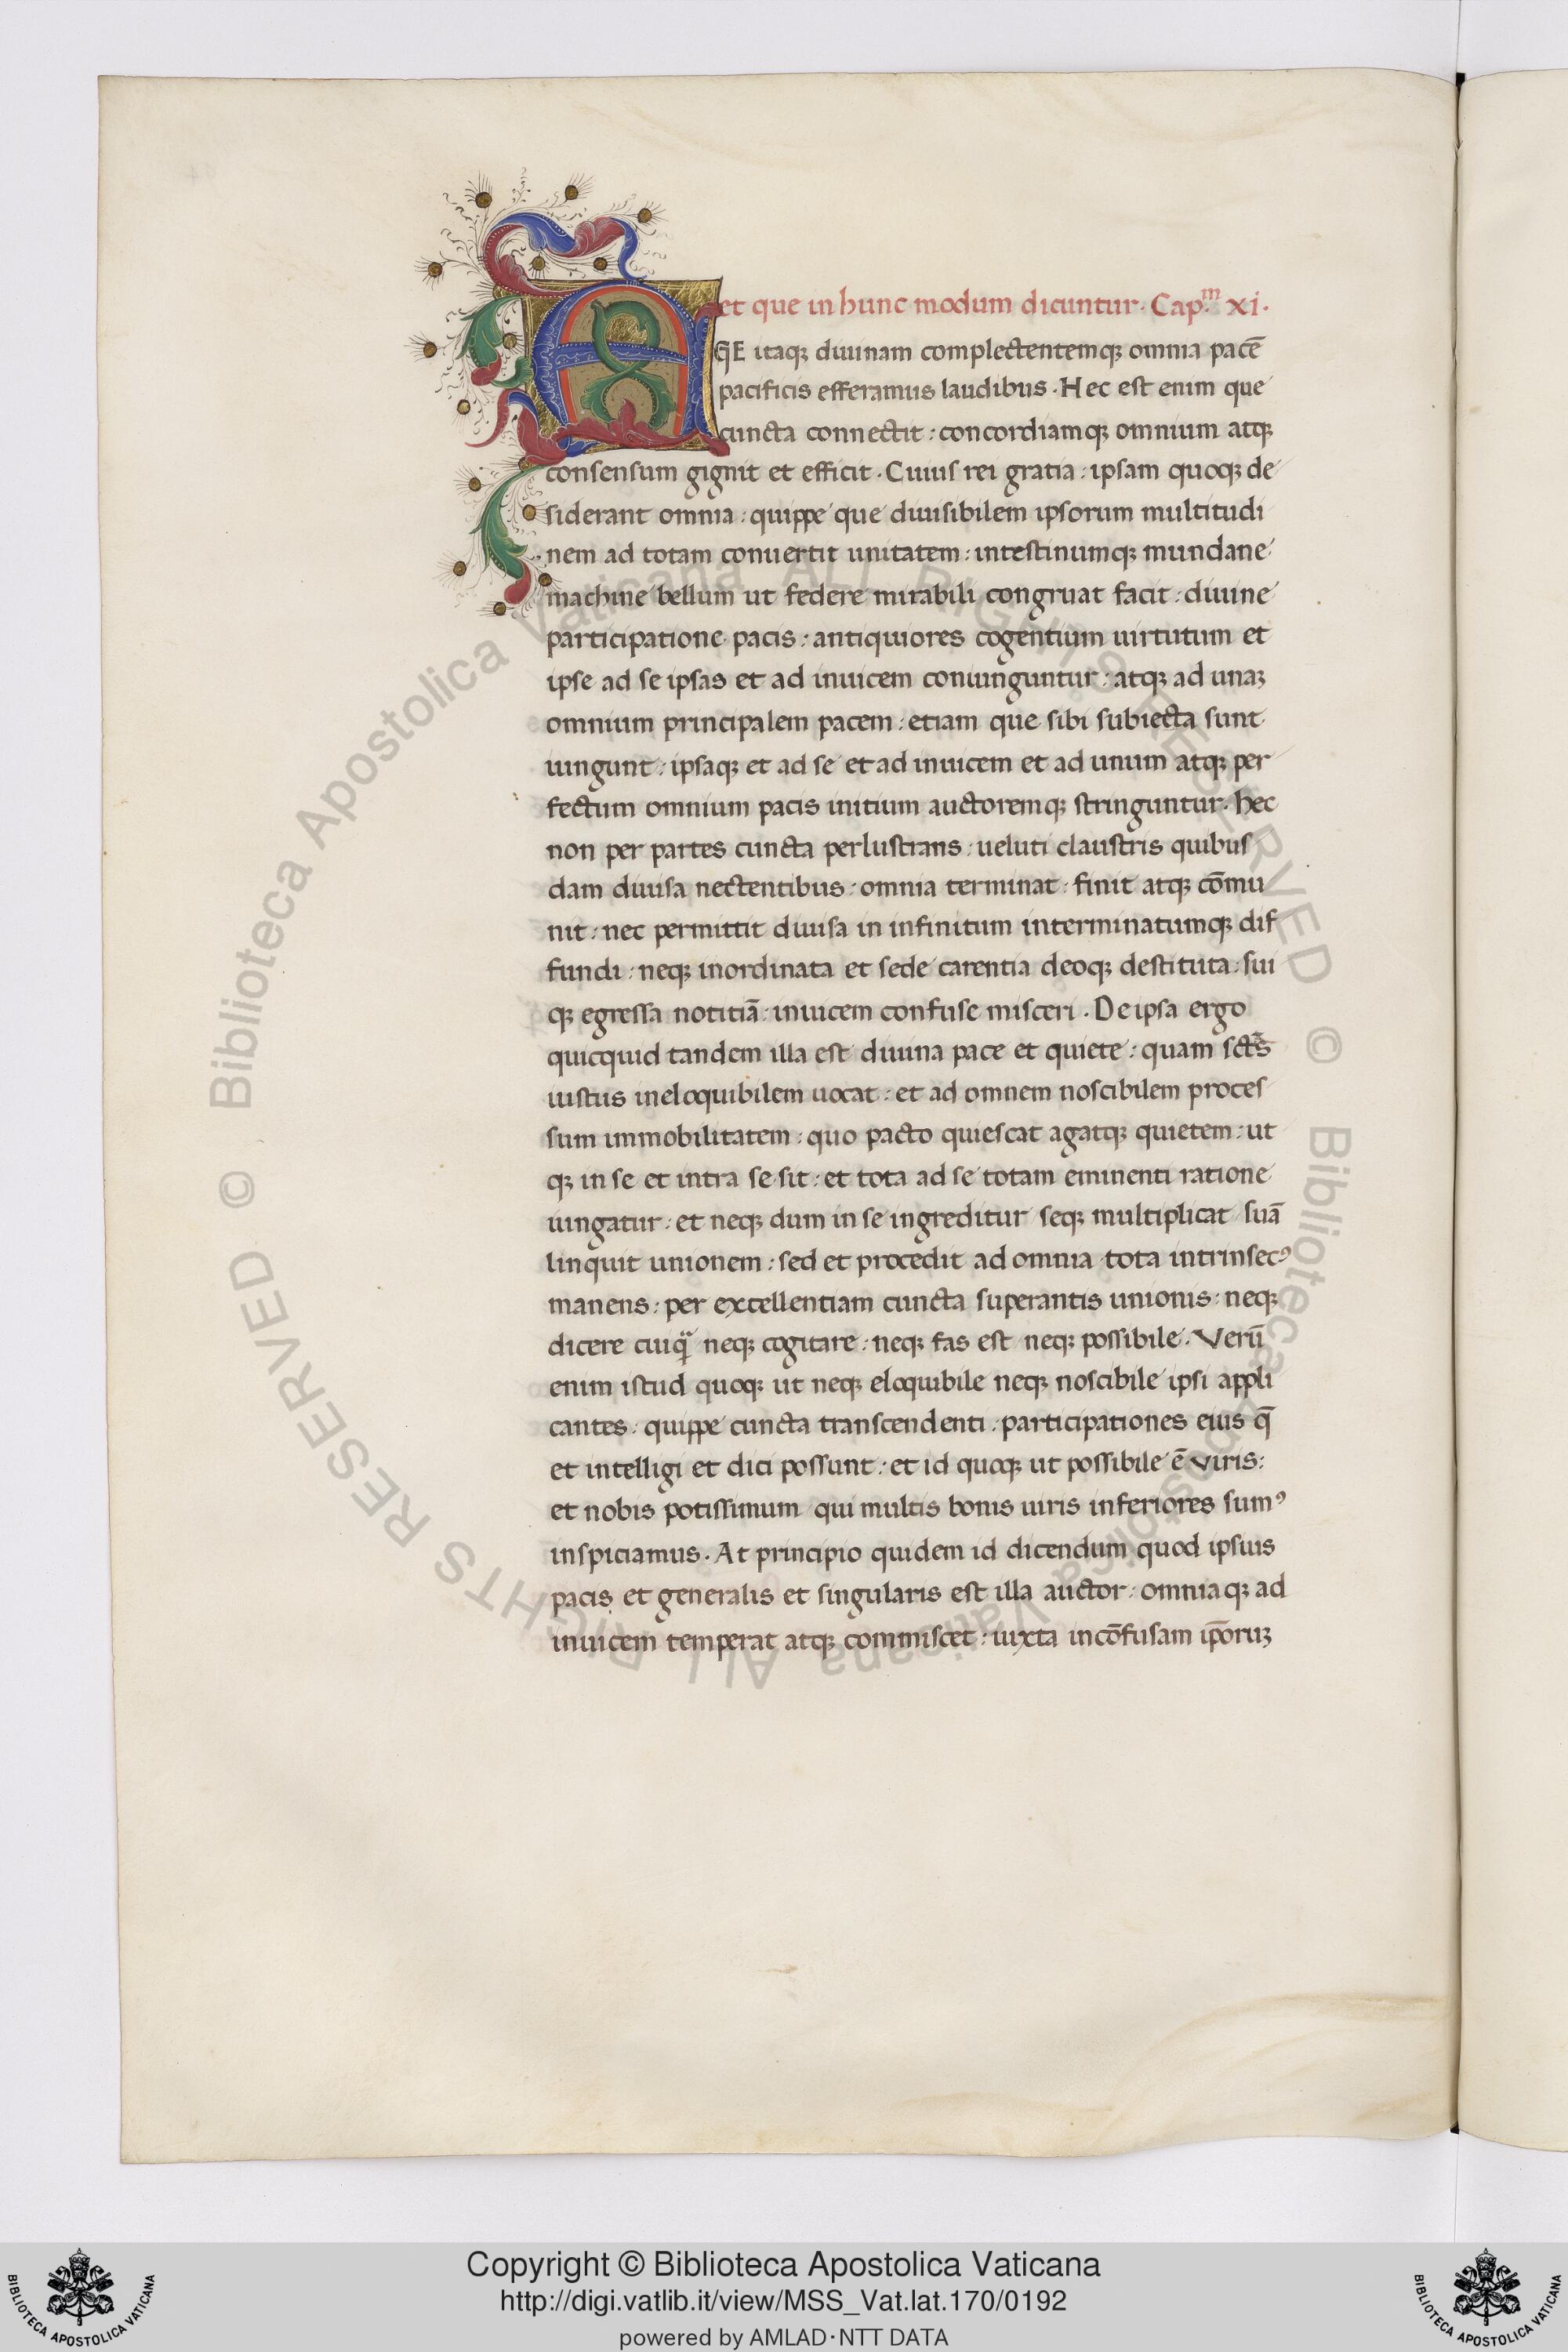 et que in hunc modum dicuntur. Cap.m xi.
AGE itaqꝫ diuinam complectentemqꝫ omnia pacē
pacificis efferamus laudibus. Hec est enim que
cuncta connectit: concordiamqꝫ omnium atqꝫ
consensum gignit et efficit. Cuius rei gratia: ipsam quoqꝫ de
siderant omnia: quippe que diuisibilem ipsorum multitudi
nem ad totam conuertit unitatem: intestinumqꝫ mundane
machine bellum ut federe mirabili congruat facit: diuine
participatione pacis: antiquiores cogentium uirtutum et
ipse ad se ipsas et ad inuicem coniunguntur: atqꝫ ad unaꝫ
omnium principalem pacem: etiam que sibi subiecta sunt
iungunt: ipsaqꝫ et ad se et ad inuicem et ad unum atqꝫ per
fectum omnium pacis initium auctoremqꝫ stringuntur. hec
non per partes cuncta perlustrans: ueluti claustris quibus
dam diuisa nectentibus: omnia terminat: finit atqꝫ cōmu
nit: nec permittit diuisa in infinitum interminatumqꝫ dif
fundi: neqꝫ inordinata et sede carentia deoqꝫ destituta: sui
qꝫ egressa notitiā: inuicem confuse misceri. De ipsa ergo
quicquid tandem illa est diuina pace et quiete: quam sct̄s
iustus ineloquibilem uocat: et ad omnem noscibilem proces
sum immobilitatem: quo pacto quiescat agatqꝫ quietem: ut
qꝫ in se et intra se sit: et tota ad se totam eminenti ratione
iungatur: et neqꝫ dum in se ingreditur seqꝫ multiplicat suā
linquit unionem: sed et procedit ad omnia tota intrinsecꝰ
manens: per excellentiam cuncta superantis unionis: neqꝫ
dicere cuiqᷓ neqꝫ cogitare: neqꝫ fas est neqꝫ possibile. Verū
enim istud quoqꝫ ut neqꝫ eloquibile neqꝫ noscibile ipsi appli
cantes: quippe cuncta transcendenti: participationes eius q̄
et intelligi et dici possunt: et id quoqꝫ ut possibile ē viris:
et nobis potissimum qui multis bonis uiris inferiores sumꝰ
inspiciamus. At principio quidem id dicendum quod ipsius
pacis et generalis et singularis est illa auctor: omniaqꝫ ad
inuicem temperat atqꝫ commiscet: iuxta incōfusam ip̄oruꝫ
© Biblioteca Apostolica Vaticana ALL RIGHTS RESERVED © Biblioteca Apostolica Vaticana ALL RIGHTS RESERVED
Copyright © Biblioteca Apostolica Vaticana
http://digi.vatlib.it/view/MSS_Vat.lat.170/0192
powered by AMLAD·NTT DATA
BIBLIOTECA APOSTOLICA VATICANA
BIBLIOTECA APOSTOLICA VATICANA